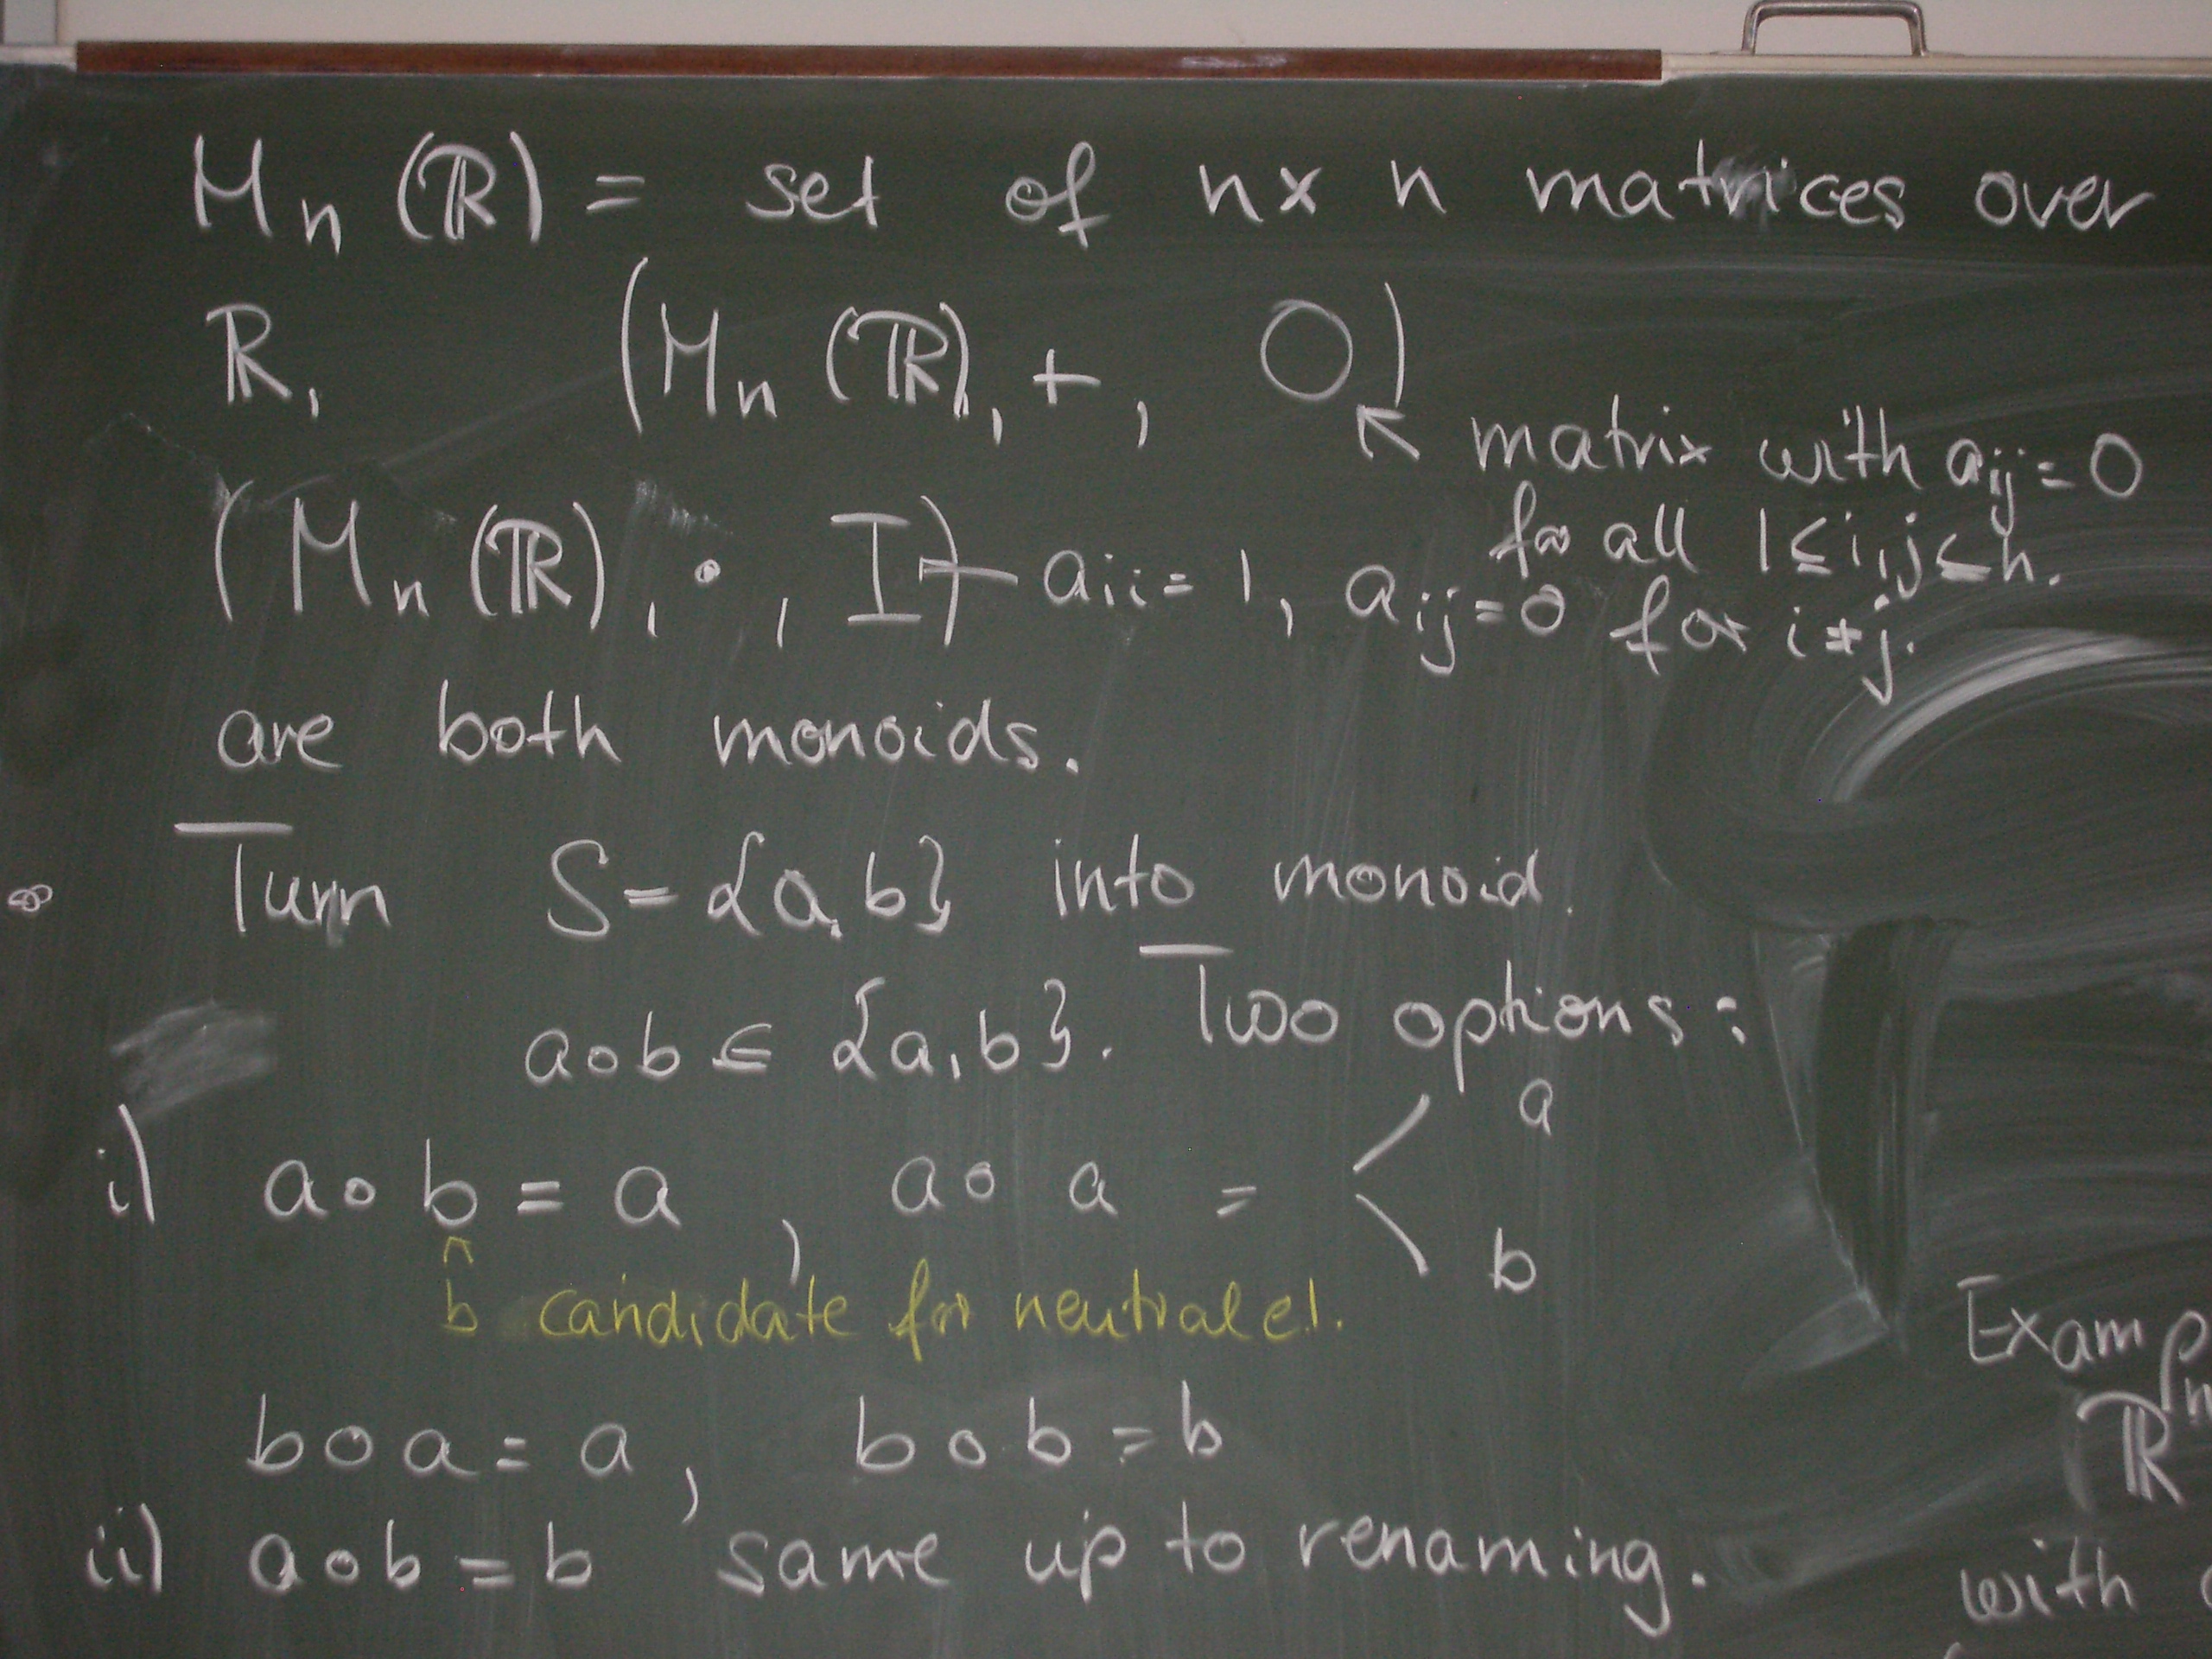 Mn (ℝ) = set of n x n matrices over
ℝ, (Mn (ℝ), +, O)
↖ matrix with aij = 0
for all 1 ≤ i,j ≤ n.
(Mn (ℝ), ·, I) — aii = 1, aij = 0 for i ≠ j.
are both monoids.
Turn S = {a, b} into monoid.
a∘b ∈ {a, b}. Two options:
i) a∘b = a, a∘a = < a
b
^
b candidate for neutral el.
b∘a = a, b∘b = b
ii) a∘b = b same up to renaming.
Examp
ℝ
with